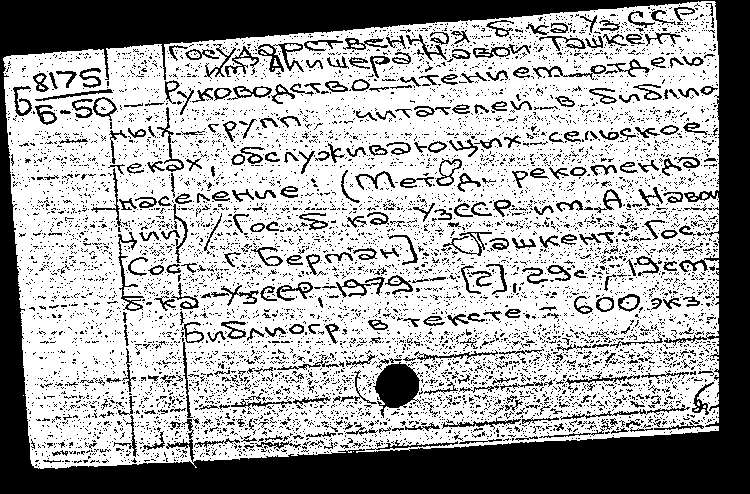 Государственная б-ка УзССР
им. Алишера Навои Ташкент.
Б 8175
Б-50
Руководство чтением отдель-
ных групп читателей в библио
теках, обслуживающих сельское
население: (Метод. рекоменда-
ции) / Гос. б-ка УзССР им. А. Навои
Сост. Г. Берман]. - Ташкент: Гос.
б-ка УзССР, 1979 - [2], 29с., 19см.
Библиогр. в тексте. = 600 экз.